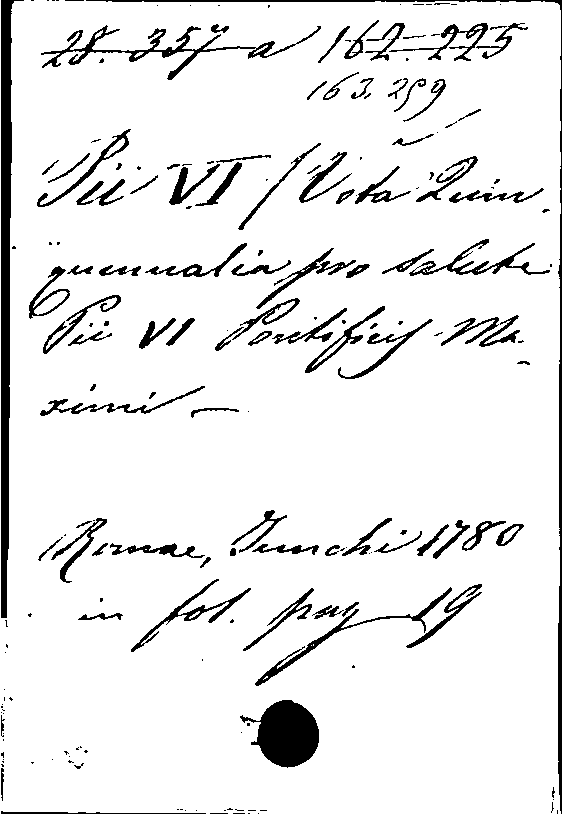 28. 357 a 162. 225
163. 259
Pii VI / Vota Quin
quennalia pro salute
Pii VI Pontificis Ma-
ximi —
Romae, Junchi 1780
in fol. pag 19